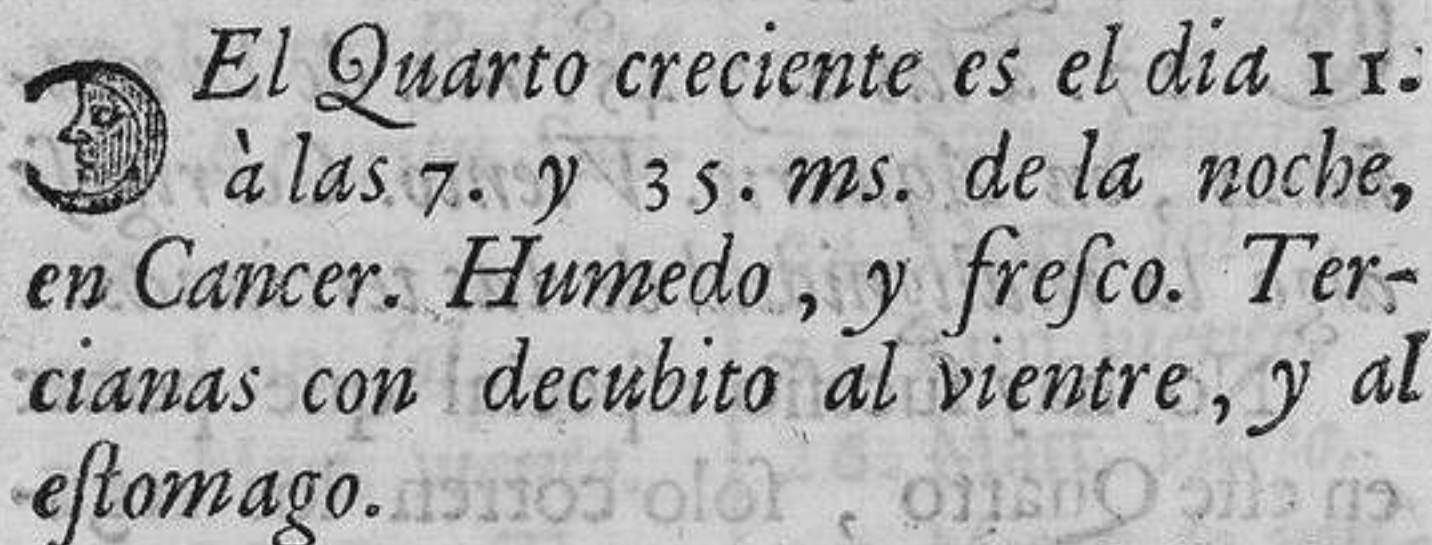 El Quarto creciente es el dia 11.
à las 7. y 35. ms. de la noche,
en Cancer. Humedo, y freſco. Ter-
cianas con decubito al vientre, y al
eſtomago.